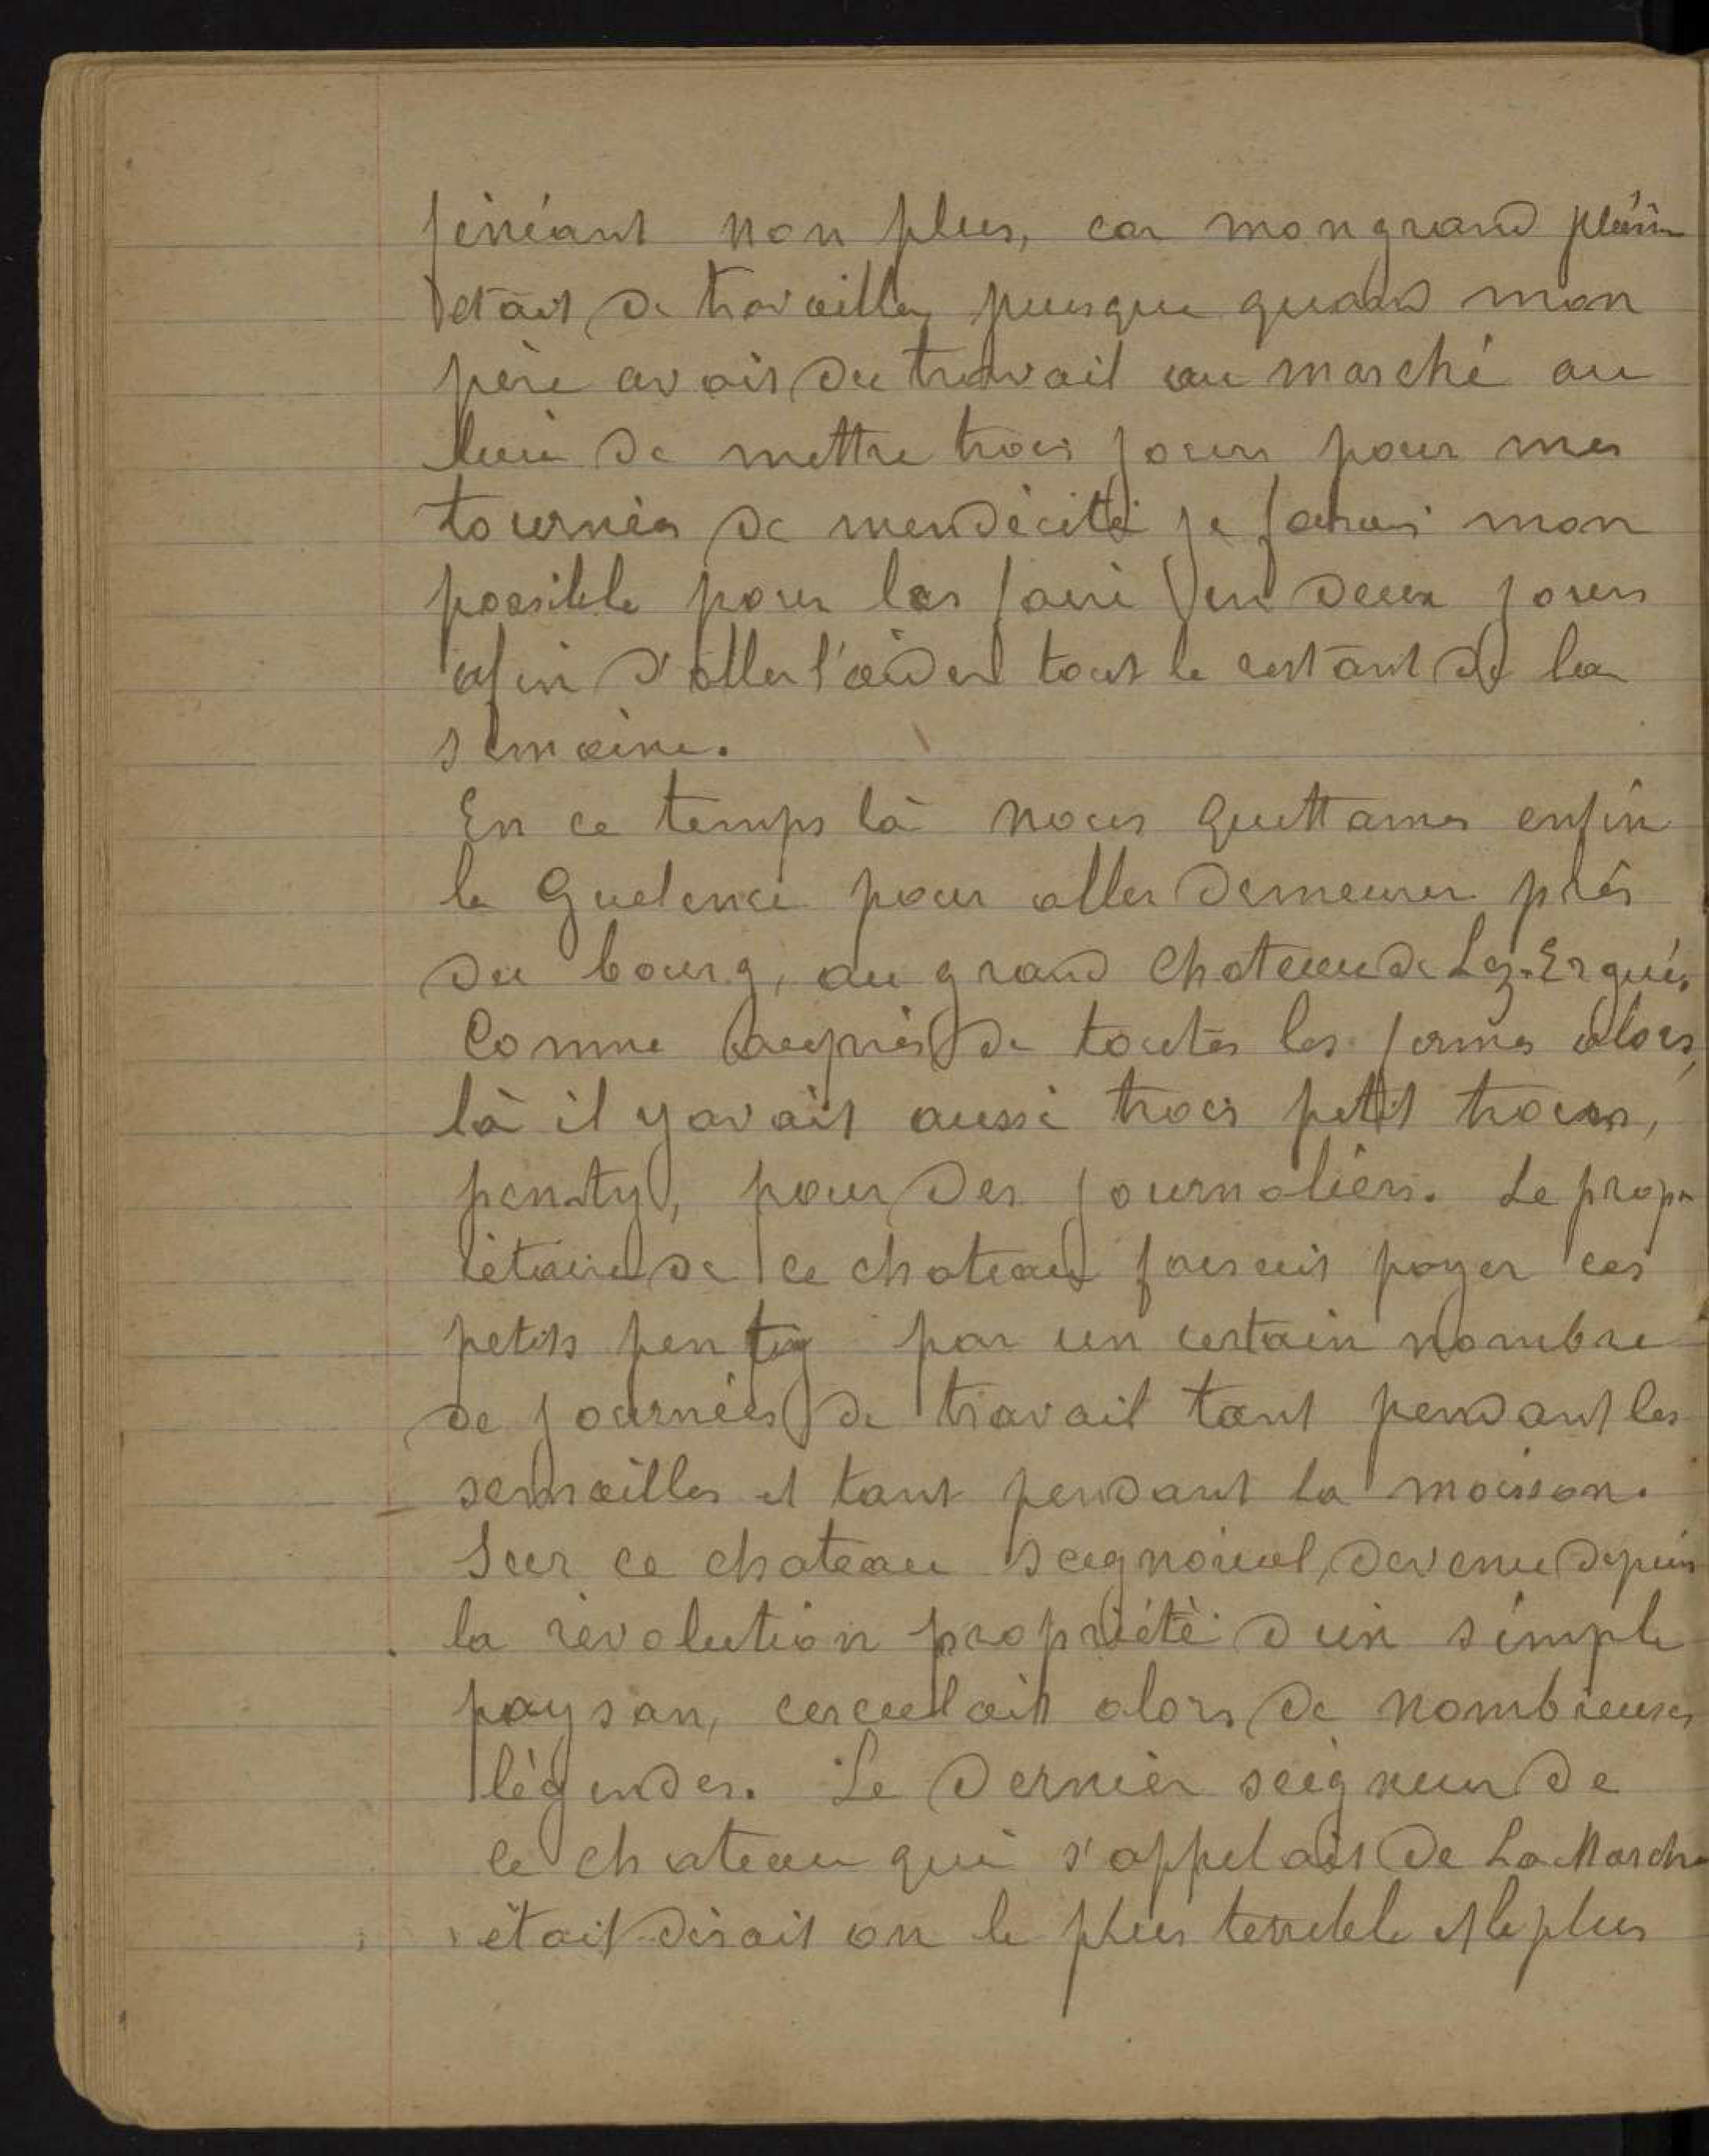 fénéant non plus, car mon grand plaisir
était de travailler puisque quand mon
père avait du travail au marché au
lieu de mettre trois jours pour mes
tournées de mendécité je faisais mon
possible pour les faire en deux jours
afin d'aller l'aider tout le restant de la
semaine.
En ce temps là nous quittames enfin
le Guelenec pour aller demeurer près
du bourg, au grand chateau de Lez-Ergué.
Comme auprès de toutes les fermes alors,
là il y avait aussi trois petit trous,
penty, pour des journaliers. Le propri
iétaire de ce chateau faisait payer ces
petits penty par un certain nombre
de journées de travail tant pendant les
semailles et tant pendant la moisson.
Sur ce chateau seignorial, devenu depuis
la révolution propriété d'un simple
paysan, cerculait alors de nombreuses
légendes. Le dernier seigneur de
ce chateau qui s'appelait de La Marche
était disait on le plus terrible et le plus